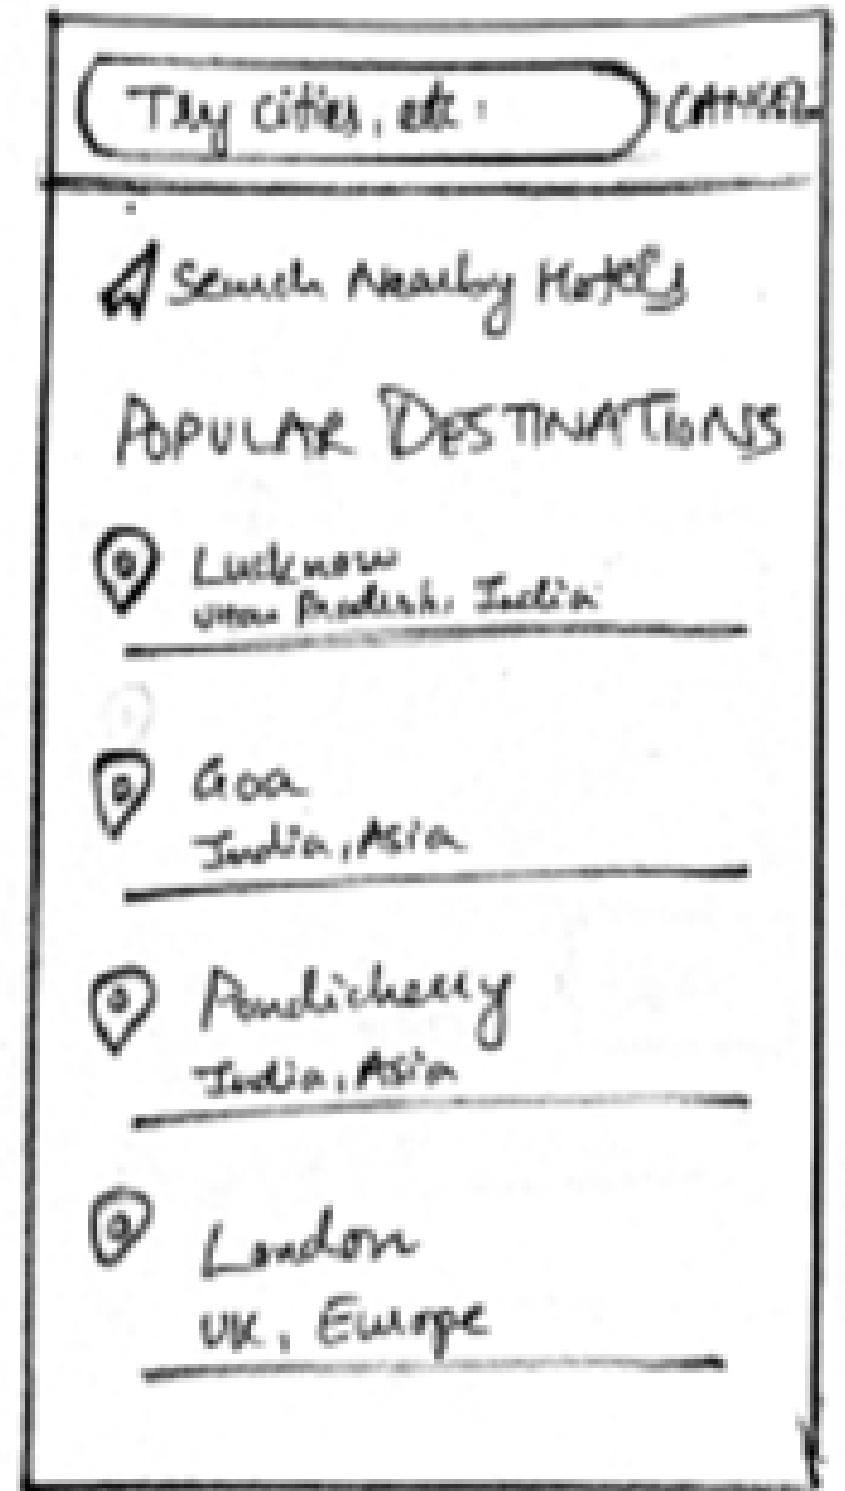 Try cities, etc.
CANCEL
Search Nearby Hotels
POPULAR DESTINATIONS
Lucknow
Uttar Pradesh, India
Goa
India, Asia
Pondicherry
India, Asia
London
UK, Europe